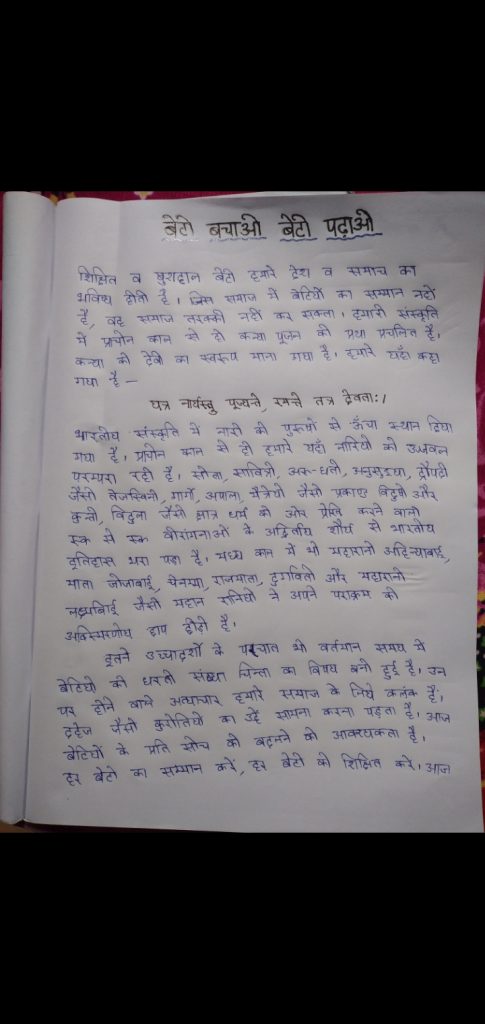 बेटी बचाओ बेटी पढ़ाओ
शिक्षित व खुशहाल बेटी हमारे देश व समाज का
भविष्य होती है। जिस समाज में बेटियों का सम्मान नहीं
है, वह समाज तरक्की नहीं कर सकता। हमारी संस्कृति
में प्राचीन काल से ही कन्या पूजन की प्रथा प्रचलित है,
कन्या को देवी का स्वरूप माना गया है। हमारे यहाँ कहा
गया है –
यत्र नार्यस्तु पूज्यन्ते, रमन्ते तत्र देवताः।
भारतीय संस्कृति में नारी को पुरूषों से ऊँचा स्थान दिया
गया है, प्राचीन काल से ही हमारे यहाँ नारियों की उज्जवल
परम्परा रही है, सीता, सावित्री, अरून्धती, अनुसुइया, द्रौपदी
जैसी तेजस्विनी, मार्गी, अपाला, मैत्रेयी जैसी प्रकाण्ड विदुषी और
कुन्ती, विदुला जैसी क्षात्र धर्म की ओर प्रेरित करने वाली
एक से एक वीरांगनाओं के अद्वितीय शौर्य से भारतीय
इतिहास भरा पड़ा है, मध्य काल में भी महारानी अहिल्याबाई,
माता जीजाबाई, चेनम्मा, राजमाता, दुर्गावती और महारानी
लक्ष्मीबाई जैसी महान रानियों ने अपने पराक्रम की
अविस्मरणीय छाप छोड़ी है,
इतने उच्चादर्शों के पश्चात भी वर्तमान समय में
बेटियों की घटती संख्या चिन्ता का विषय बनी हुई है, उन
पर होने वाले अत्याचार हमारे समाज के लिये कलंक है,
दहेज जैसी कुरीतियों का उन्हें सामना करना पड़ता है, आज
बेटियों के प्रति सोच को बदलने की आवश्यकता है,
हर बेटी का सम्मान करें, हर बेटी को शिक्षित करें, आज